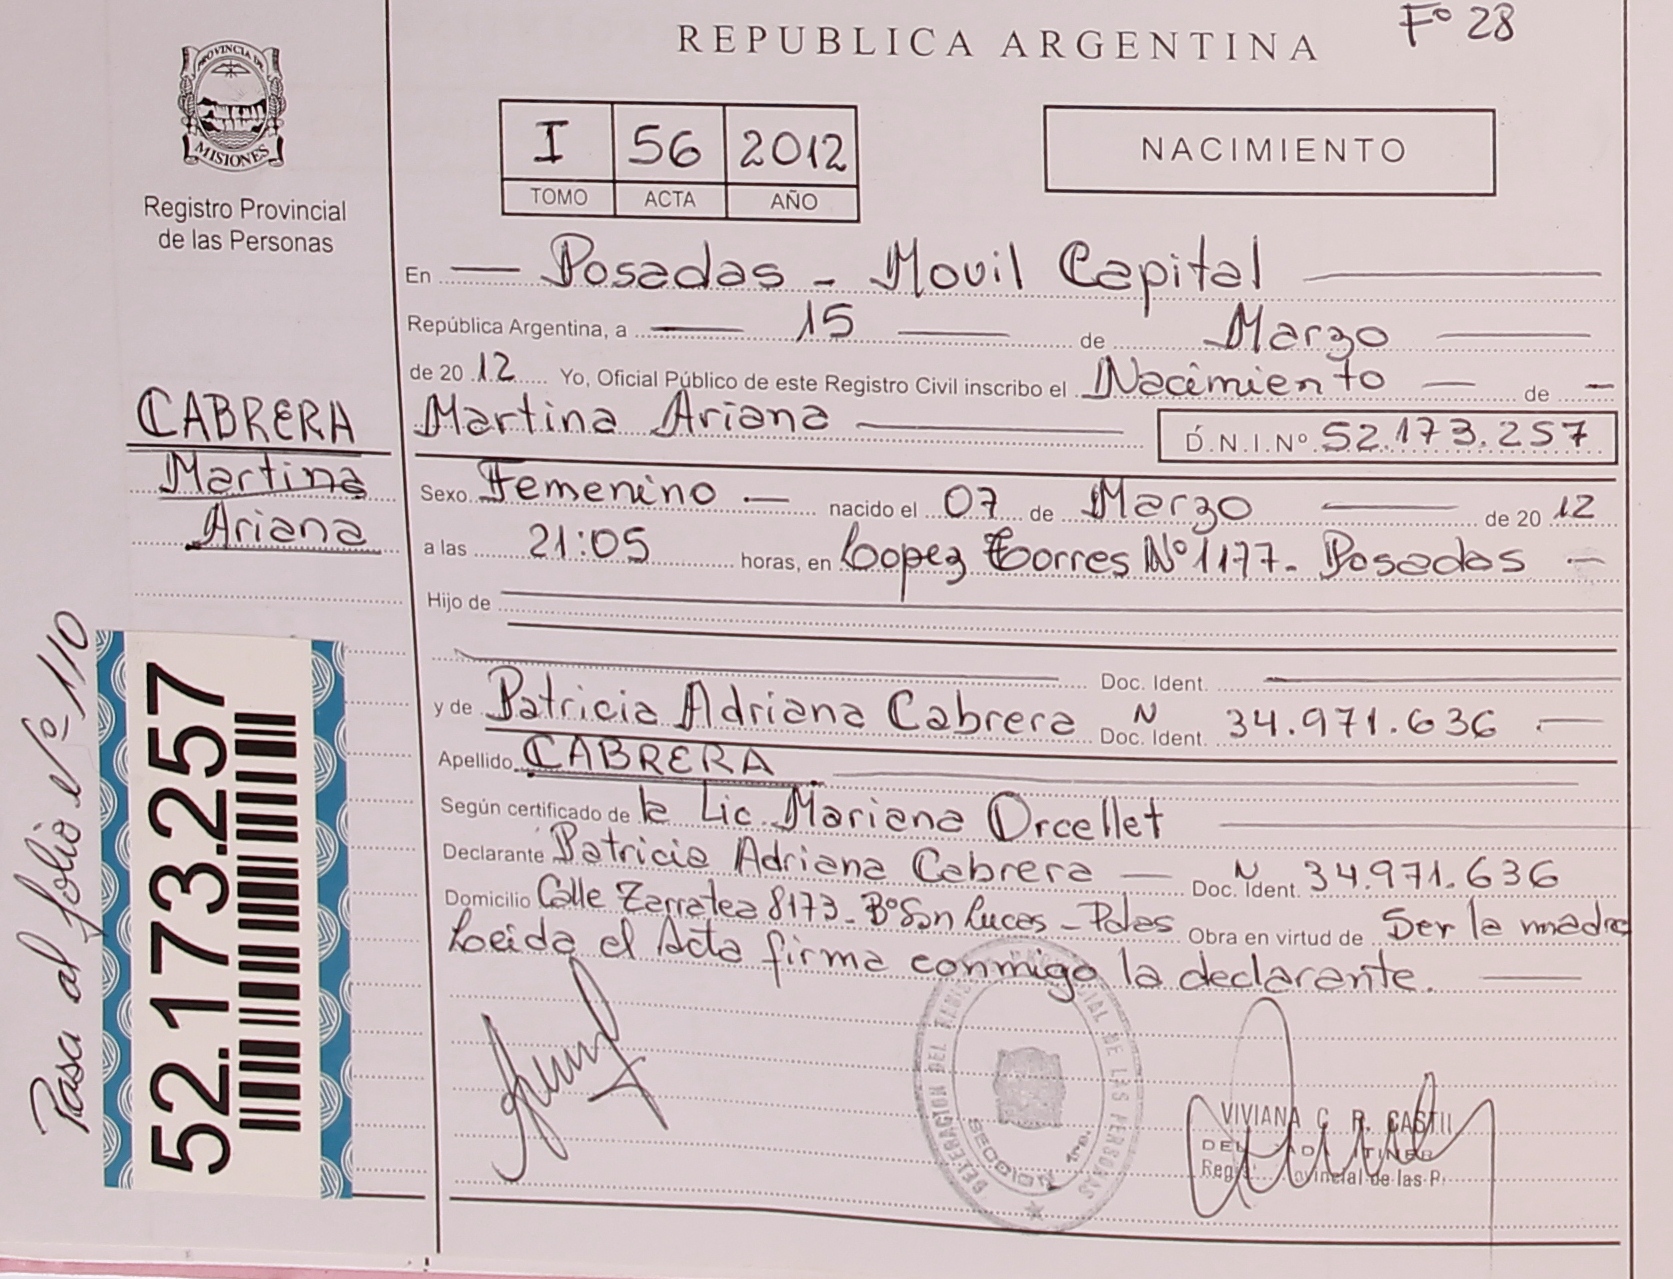 Fº 28
REPUBLICA ARGENTINA
PROVINCIA DE
MISIONES
Registro Provincial
de las Personas
I 56 2012
TOMO ACTA AÑO
NACIMIENTO
En Posadas - Movil Capital
República Argentina, a 15 de Marzo
de 2012 Yo, Oficial Público de este Registro Civil inscribo el Nacimiento de
CABRERA
Martina
Ariana
Martina Ariana D.N.I.Nº 52.173.257
Sexo Femenino nacido el 07 de Marzo de 2012
a las 21:05 horas, en Lopez Torres Nº 1177- Posadas
Hijo de
Doc. Ident.
y de Patricia Adriana Cabrera N Doc. Ident. 34.971.636
Apellido CABRERA
Según certificado de la Lic. Mariana Orcellet
Declarante Patricia Adriana Cabrera N Doc. Ident. 34.971.636
Domicilio Calle Zarratea 8173- Bº San Lucas - Pdas Obra en virtud de Ser la madre
Leida el Acta firma conmigo la declarante.
Pasa al folio Nº 110
52.173.257
DELEGACION DEL REGISTRO PROVINCIAL DE LAS PERSONAS
SECCION 1ra.
VIVIANA C. R. CASTIL
Provincial de las P.